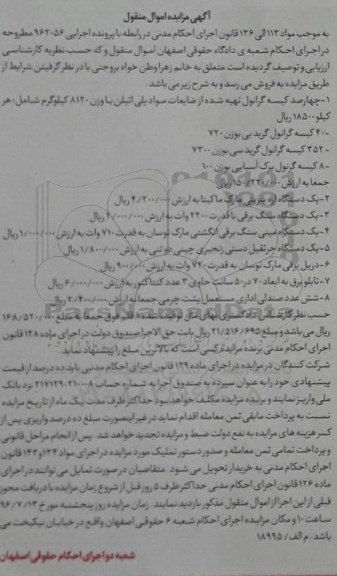 آگهی مزایده اموال منقول
به موجب مواد ۱۱۳ الی ۱۲۶ قانون اجرای احکام مدنی در رابطه با پرونده اجرایی ۹۶۲۰۵۶ مطروحه
در اجرای احکام شعبه ی دادگاه حقوقی اصفهان اموال منقول و که حسب نظریه کارشناسی
ارزیابی و توصیف گردیده است متعلق به خانم زهرا وطن خواه بروجنی با در نظر گرفتن شرایط از
طریق مزایده به فروش می رسد و به شرح زیر می باشد.
۱-چهارصد کیسه گرانول تهیه شده از ضایعات مواد پلی اتیلن با وزن ۸۱۲۰ کیلوگرم شامل: هر
کیلو ۱۸۵۰۰ ریال
-۴۰ کیسه گرانول گرید بی بوزن ۷۲۰
-۳۵۲ کیسه گرانول گرید سی بوزن ۷۳۰۰
-۸ کیسه گرنول برک آسیابی بوزن ۱۰۰
جمعا به ارزش ریال
۲-یک دستگاه اره بنزینی مارک ماکیتا به ارزش ۴/۲۰۰/۰۰۰ ریال
۳-یک دستگاه سنگ برقی با قدرت ۲۲۰۰ وات به ارزش ۲/۰۰۰/۰۰۰ ریال
۴-یک دستگاه مینی سنگ برقی انگشتی مارک توسان به قدرت ۷۱۰ وات به ارزش ۱/۰۰۰/۰۰۰ ریال
۵-یک دستگاه جرثقیل دستی زنجیری چینی دو تنی به ارزش ۱/۸۰۰/۰۰۰ ریال
۶-دریل برقی مارک توسان به قدرت ۷۲۰ وات به ارزش ۹۰۰/۰۰۰ ریال
۷-تابلو برق به ابعاد ۷۰ در ۵۰ سانت حاوی ۳ عدد کنتاکتور به ارزش ۶/۰۰۰/۰۰۰ ریال
۸-شش عدد صندلی اداری مستعمل پشت چرمی جمعا به ارزش ۲/۴۰۰/۰۰۰ ریال
حسب نظر کارشناس دادگستری بهای فوق جمعا به مبلغ ۱۶۸/۵۲۰/۰۰۰
ریال می باشد و مبلغ ۲۱/۵۱۶/۶۹۵ ریال بابت حق الاجرا صندوق دولت در اجرای ماده ۱۲۸ قانون
اجرای احکام مدنی برنده مزایده کسی است که بالاترین مبلغ را پیشنهاد نماید
شرکت کنندگان در مزایده در اجرای ماده ۱۲۹ قانون اجرای احکام مدنی باید ده درصد از قیمت
پیشنهادی خود را به عنوان سپرده به صندوق اجرا به شماره حساب نزد بانک
ملی واریز نمایند و برنده مزایده مکلف خواهد بود حداکثر ظرف مدت یک ماه از تاریخ مزایده
نسبت به پرداخت مابقی ثمن معامله اقدام نماید در غیر اینصورت مبلغ ده درصد واریزی پس از
کسر هزینه های مزایده به نفع دولت ضبط و مزایده تجدید خواهد شد. پس از انجام مراحل قانونی
و پرداخت تمامی ثمن معامله و صدور دستور تملیک مورد مزایده در اجرای مواد ۱۳۴ و ۱۴۳ قانون
اجرای احکام مدنی به خریدار تحویل می شود. متقاضیان در صورت تمایل می توانند در اجرای
ماده ۱۲۶ قانون اجرای احکام مدنی حداکثر ظرف ۵ روز قبل از شروع زمان مزایده با دریافت مجوز
قبلی از این اجرا از اموال منقول مذکور بازدید نمایند. زمان مزایده روز پنجشنبه مورخ ۹۶/۷/۱۳
ساعت ۱۰ و مکان مزایده اجرای احکام شعبه ۶ حقوقی اصفهان واقع در خیابان نیکبخت می
باشد. م الف/ ۱۸۹۹۵
شعبه دو اجرای احکام حقوقی اصفهان